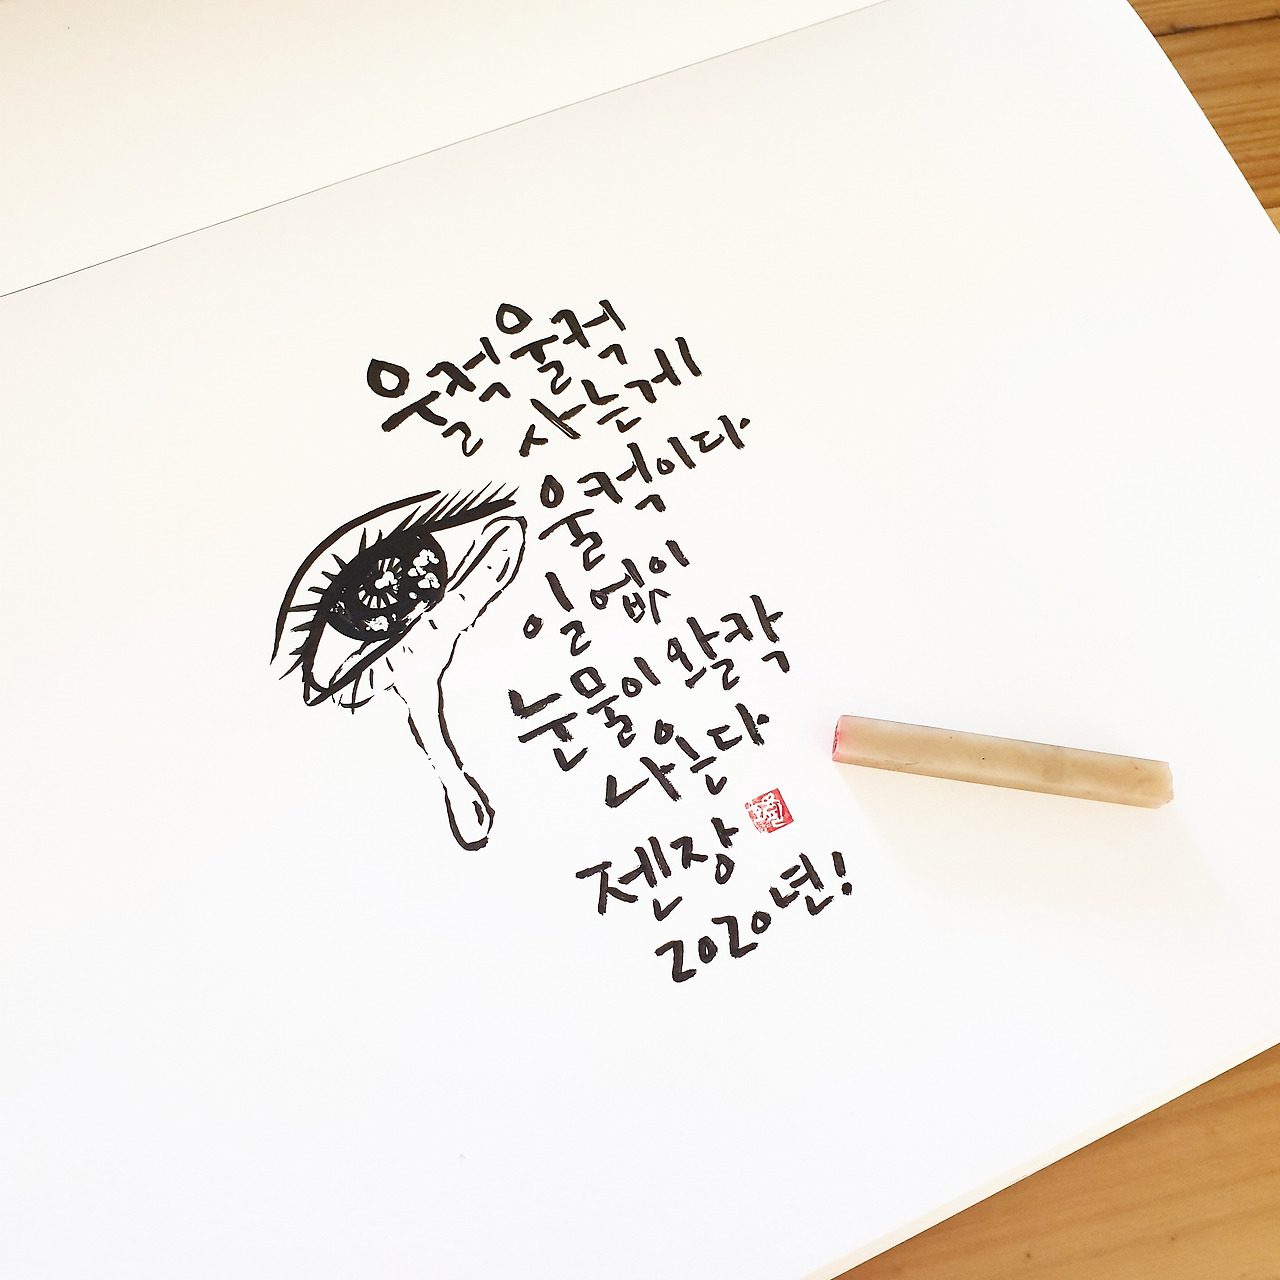 울컥울컥
사는게
울컥이다
일 없이
눈물이 왈칵
나온다
젠장
2020년!